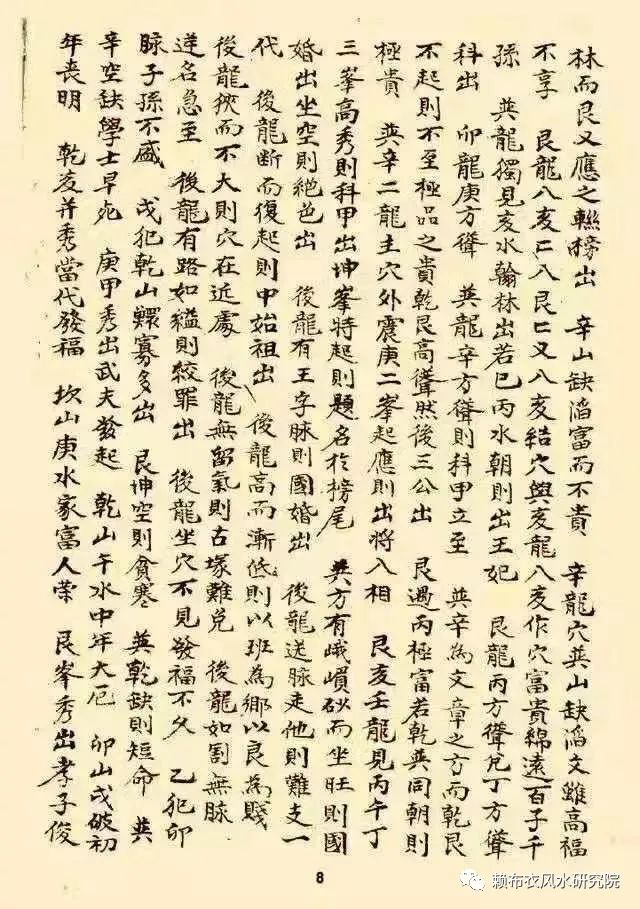 林而艮又應之聯榜出 辛山缺滔富而不貴 辛龍穴巽山缺滔文雖高福
不享 艮龍八亥二八艮亡又八亥結穴與亥龍八亥作穴富貴綿遠百子千
孫 巽龍獨見亥水翰林出若巳丙水朝則出王妃 艮龍丙方聳兌丁方聳
科出 卯龍庚方聳 巽龍辛方聳則科甲立至 巽辛為文章之方而乾艮
不起則不至極品之貴乾艮高聳然後三公出 艮遇丙極富若乾巽同朝則
極貴 巽辛二龍主穴外震庚二峯起應則出將入相 艮亥壬龍見丙午丁
三峯高秀則科甲出坤峯特起則題名於榜尾 巽方有峨嵋砂而坐旺則國
婚出坐空則絕色出 後龍有王字脉則國婚出 後龍送脉走他則難支一
代 後龍断而復起則中始祖出 後龍高而漸低則以班為鄉以良為賤
後龍狹而不大則穴在近處 後龍無留氣則古塚難兌 後龍如割無脉
逆名急至 後龍有路如縊則絞罪出 後龍坐穴不見發福不久 乙犯卯
脉子孫不盛 戌犯乾山鰥寡多出 艮坤空則貧寒 巽乾缺則短命 巽
辛空缺學士早死 庚甲秀出武夫發起 乾山午水中年大厄 卯山戌破初
年喪明 乾亥并秀當代發福 坎山庚水家富人榮 艮峯秀出孝子俊
8
赖布衣风水研究院